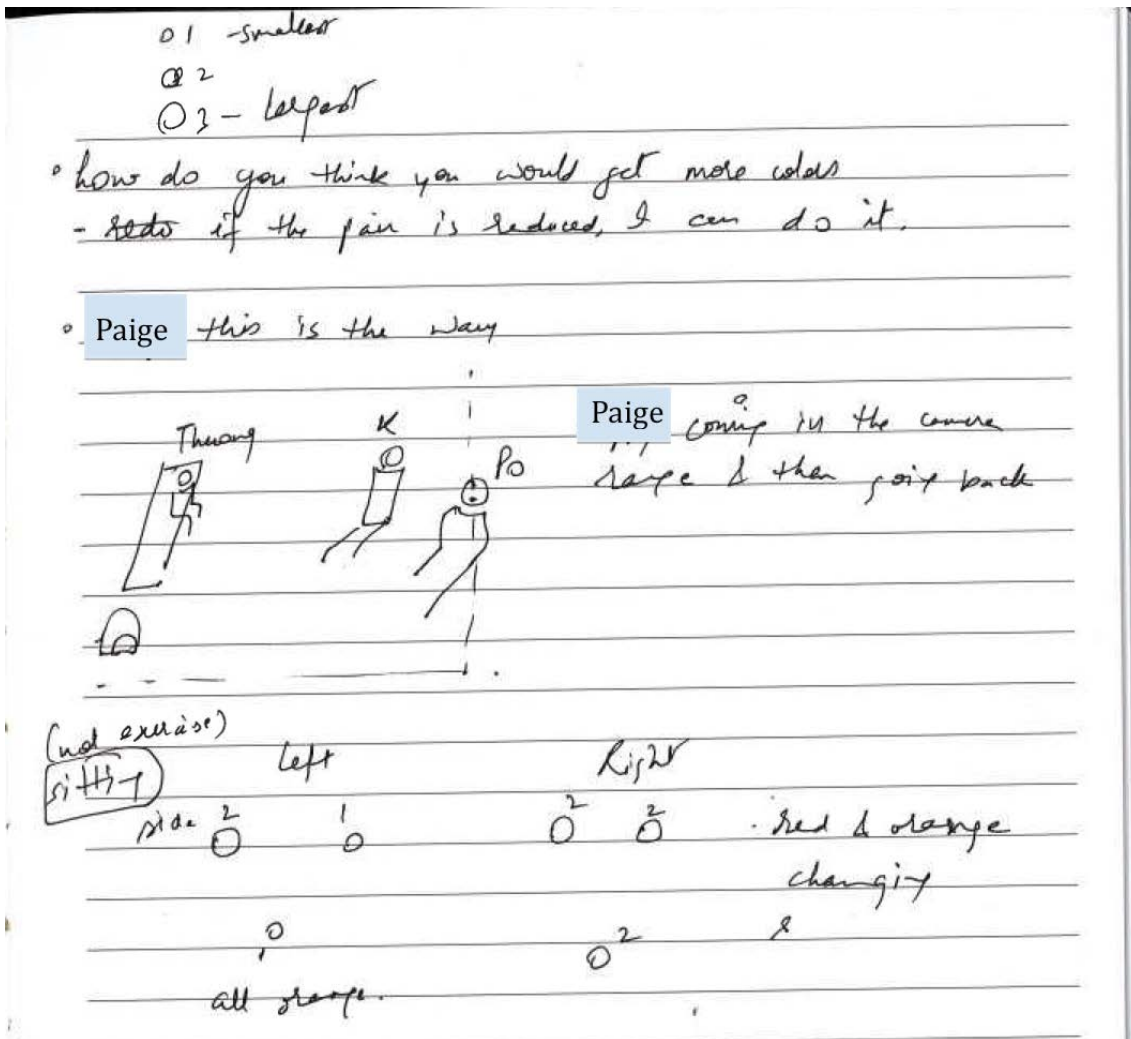 O 1 - smallest
O 2
O 3 - largest
• how do you think you would get more colors
- redo if the pain is reduced, I can do it.
• Paige this is the way
Thuong K PO
Paige coming in the camera
range & then going back
(not exercise)
sitting
Left Right
side 2 1 2 2 · red & orange
changing
2
all orange.